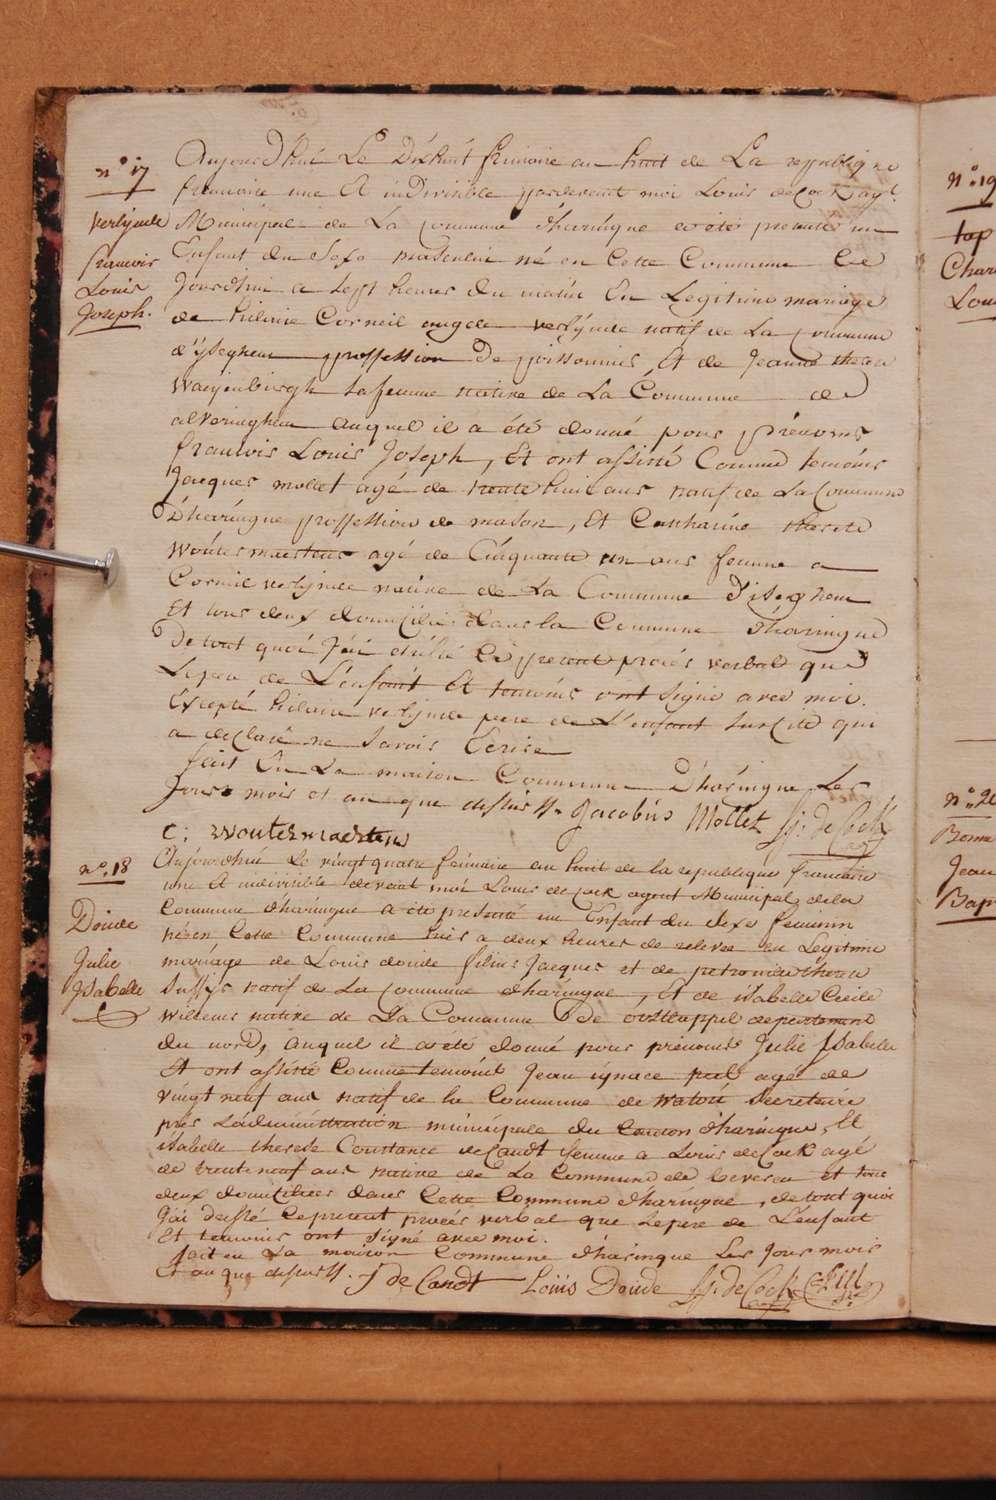 n.° 17
verlynde
francois
Louis
Joseph.
Aujourd'hui Le Dixhuit frimaire an huit de La republique
francaise une Et indivisible pardevant moi Louis deCock agt.
Municipal de La Commune d'haringue a été presenté un
Enfant du Sexe masculin né en Cette Commune Ce
Jourd'hui a sept heures du matin En Legitime mariage
de hilaire Corneil verlynde natif de La Commune
d'yseghem proffession De poissonnier, Et de Jeanne theresa
Waeyenbirgh sa femme native de La Commune de
alveringhem auquel il a été donné pour prénoms
francois Louis Joseph, Et ont assisté Comme temoins
Jacques mollet agé de trente huit ans natif de La Commune
D'haringue proffession de mason, Et Catharine therese
Woutermaertens agé de Cinquante un ans femme a
Corneil verlynde native de La Commune d'iseghem
Et tous deux domicilié dans la Commune d'haringue
De tout quoi J'ai dréssé Ce present procès verbal que
Le pere de L'enfant Et temoins ont signé avec moi.
Excepté hilaire verlynde pere de L'enfant susCité qui
a declaré ne savoir Ecrire
fait En La maison Commune D'haringue Les
Jours mois et an que dessus //. Jacobus Mollet LJ. de Cock
C: woutermaertens
n°. 18
Doude
Julie
Isabelle
Aujourd'hui Le vingt quatre frimaire an huit de la republique francaise
une Et indivisible devant moi Louis deCock agent Municipal dela
Commune d'haringue a été presenté un Enfant du Sexe feminin
né en Cette Commune hier a deux heures de relevée en Légitime
mariage de Louis doude filius Jacques et de petronille theresa
natif de La Commune d'haringue, Et de isabelle Cecile
Willems native de La Commune De oostcappel departement
du nord, auquel il a été donné pour prénoms Julie Isabelle
Et ont assisté Comme temoins Jean ignace agé de
vingt neuf ans natif de la Commune de Watou Secretaire
près L'administration municipale du Canton d'haringue, Et
isabelle therese Constance deCandt femme a Louis deCock agé
de trente neuf ans native de La Commune de beveren et tous
deux domiciliées dans Cette Commune d'haringue, de tout quoi
J'ai dressé Ce present procès verbal que Le pere de L'enfant
Et temoins ont signé avec moi.
fait en La maison Commune d'haringue Les Jours mois
Et an que dessus //. J de Candt Louis Doude LJ. de Cock
n°. 19
top
Char
Lou
n°. 20
Jean
Bap